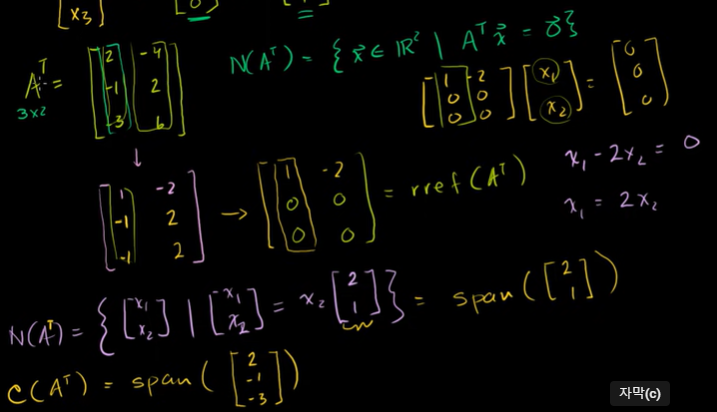 [x₃] [0]
A^T = [2 -4; -1 2; -3 6]
3x2
N(A^T) = { x⃗ ∈ ℝ² | A^T x⃗ = 0⃗ }
[1 -2; 0 0; 0 0] [x₁; x₂] = [0; 0; 0]
↓
[1 -2; -1 2; -1 2] → [1 -2; 0 0; 0 0] = rref(A^T)
x₁ - 2x₂ = 0
x₁ = 2x₂
N(A^T) = { [x₁; x₂] | [x₁; x₂] = x₂ [2; 1] } = span([2; 1])
C(A^T) = span([2; -1; -3])
자막(c)